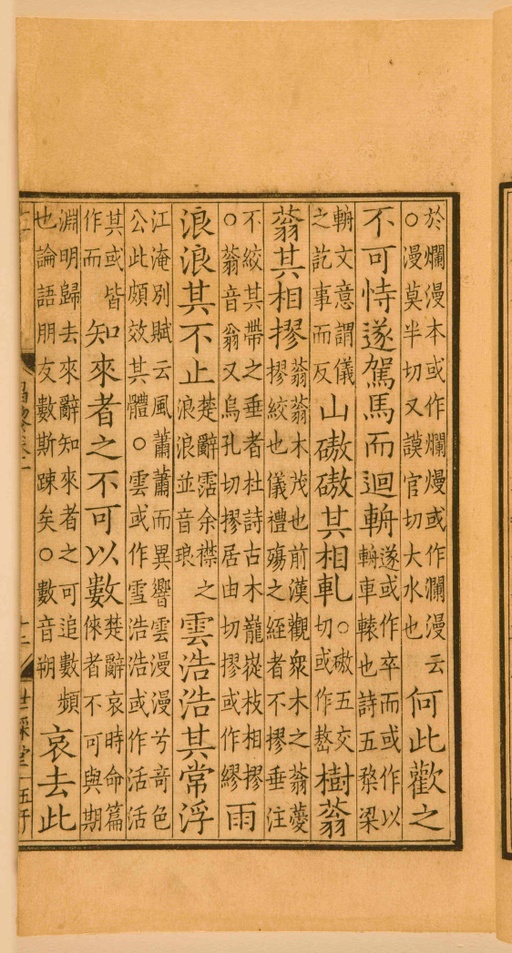 於爛漫本或作爛熳或作瀾漫云
○漫莫半切又謨官切大水也
何此歡之
不可恃遂駕馬而迴輈
遂或作卒而或作以
輈車轅也詩五楘梁
輈文意謂儀
之訖事而反
山磝磝其相軋
○磝五交
切或作嶅
樹蓊
蓊其相摎
蓊蓊木茂也前漢觀衆木之蓊薆
摎絞也儀禮殤之絰者不摎垂注
不絞其帶之垂者杜詩古木巃嵸枝相摎
○蓊音翁又烏孔切摎居由切摎或作繆
雨
浪浪其不止
楚辭霑余襟之
浪浪並音琅
雲浩浩其常浮
江淹別賦云風蕭蕭而異響雲漫漫兮奇色
公此頗效其體○雲或作雪浩浩或作活活
其或皆
作而
知來者之不可以數
楚辭哀時命篇
倈者不可與期
淵明歸去來辭知來者之可追數頻
也論語朋友數斯踈矣○數音朔
哀去此
世綵堂